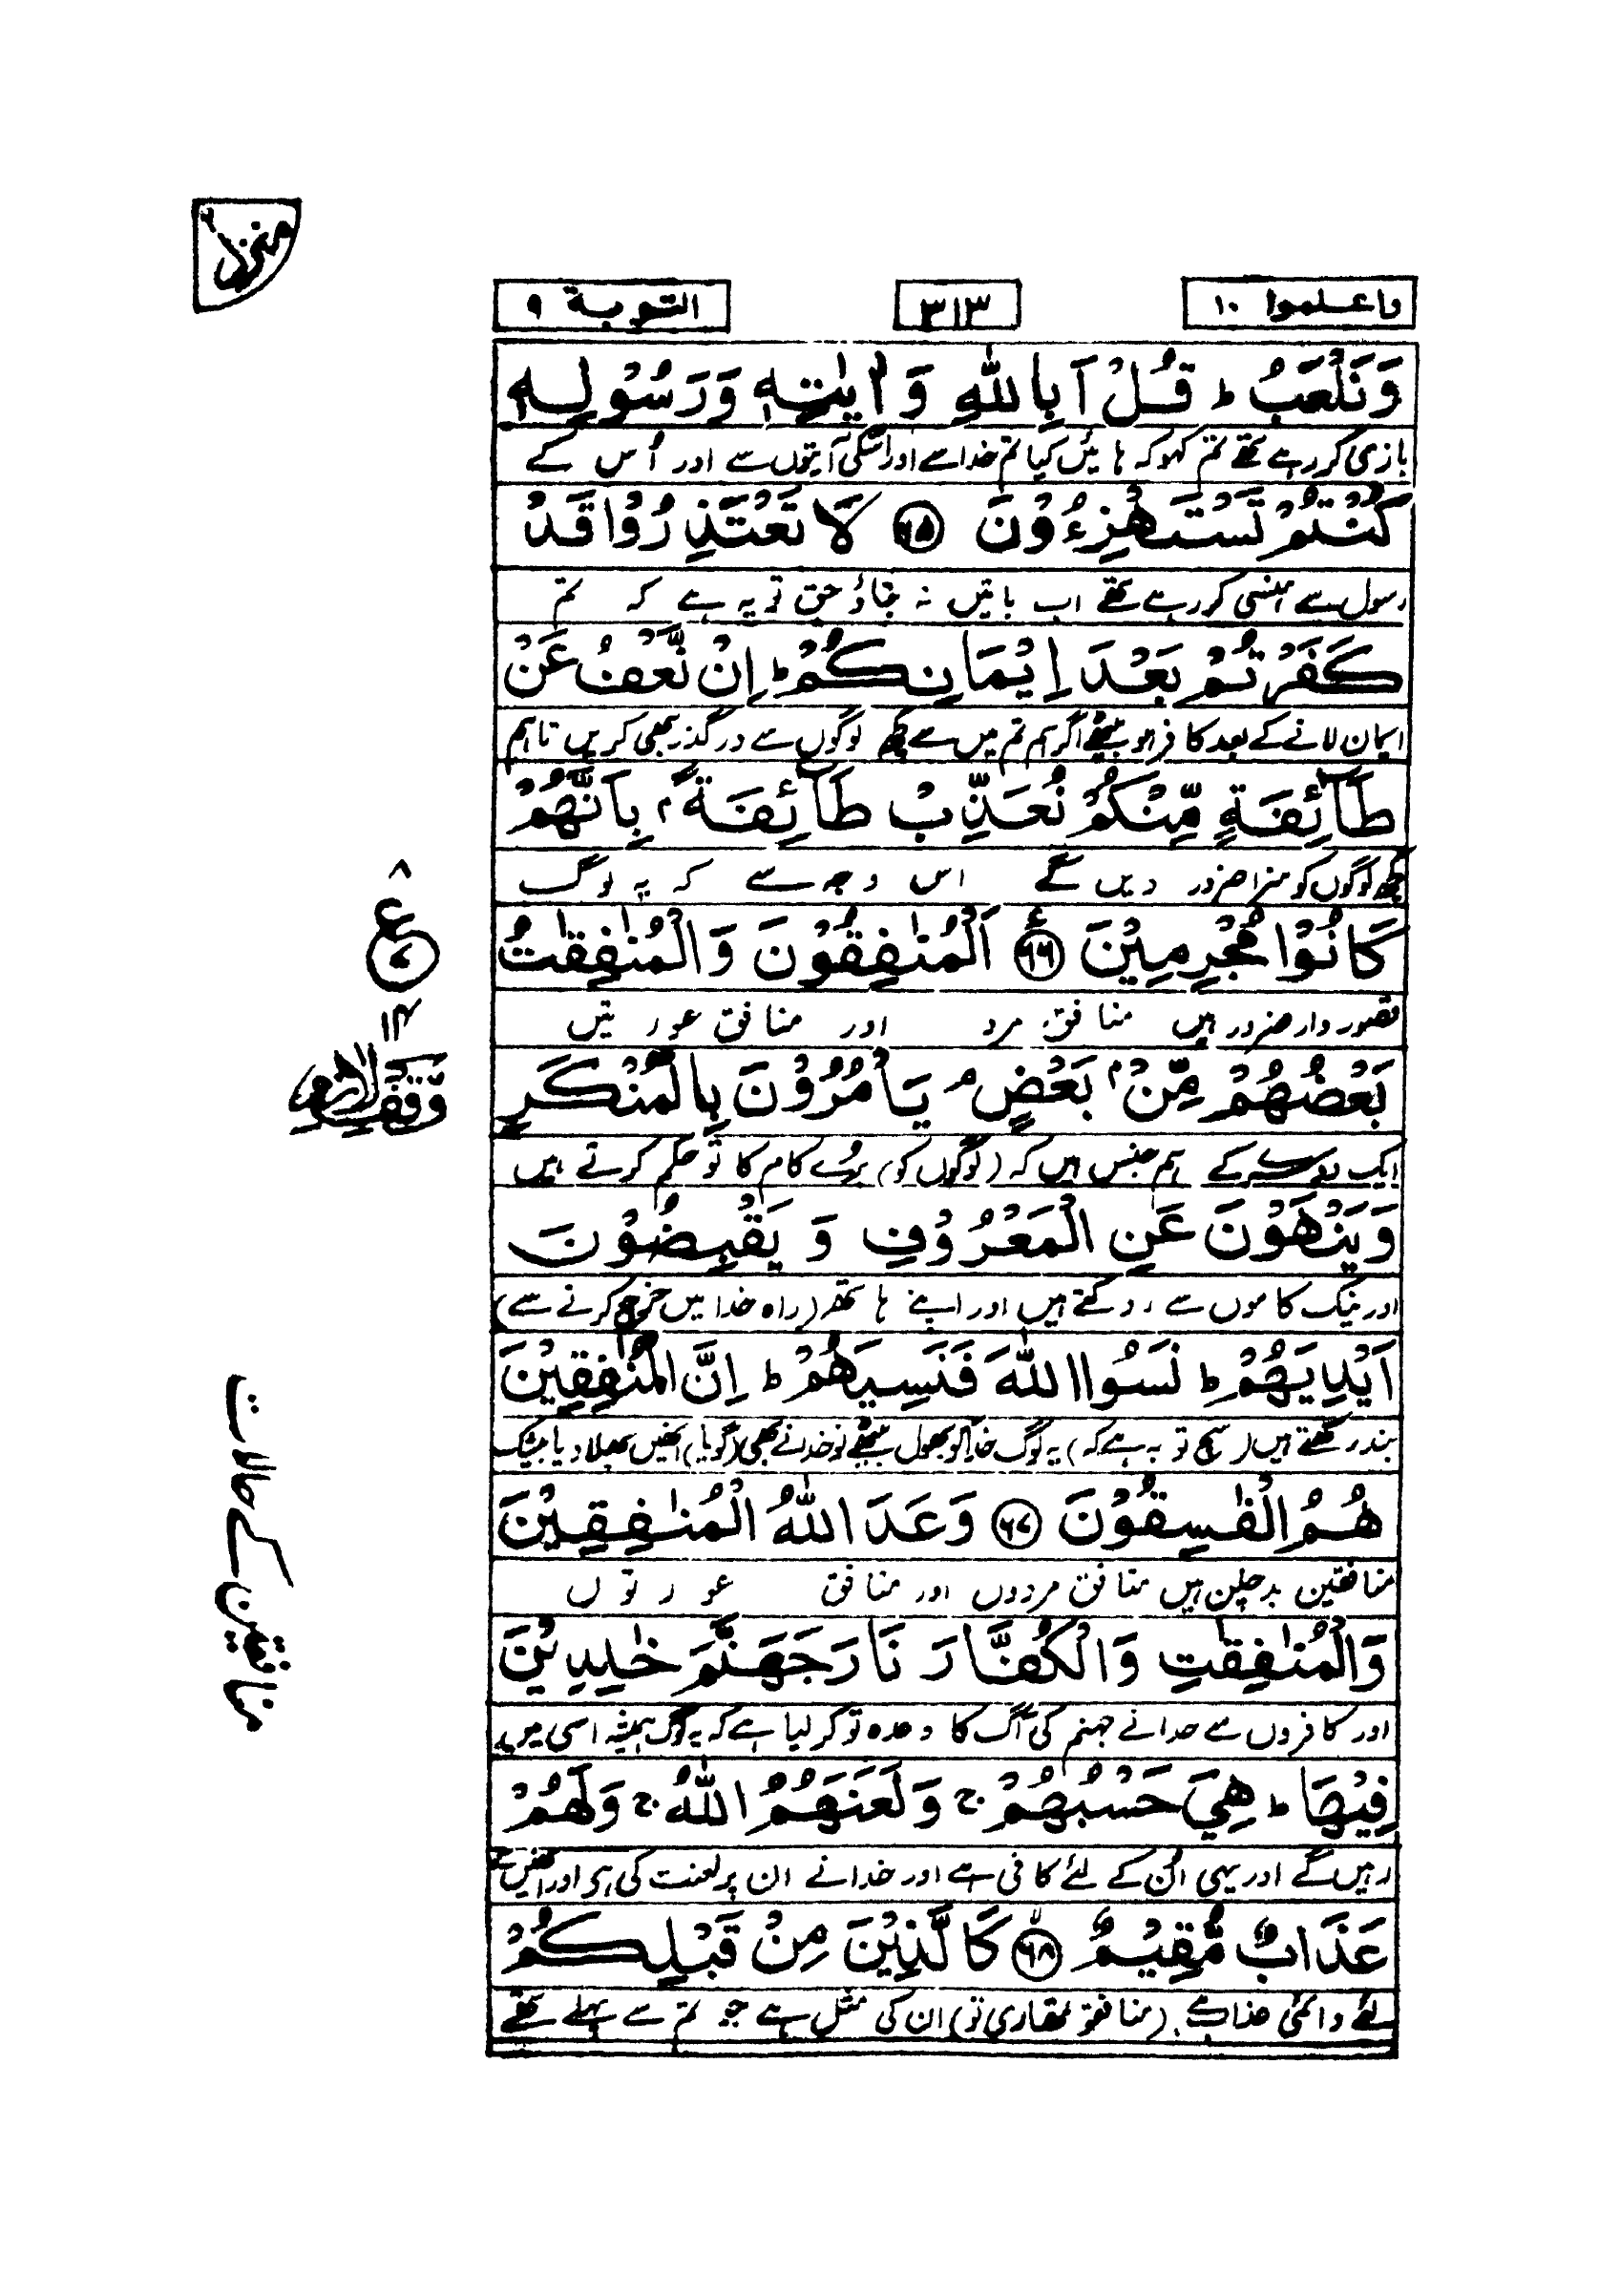 منزل ٢
واعلموا ١٠
٣١٣
التوبة ٩
وَنَلْعَبُ ؕ قُلْ اَبِاللّٰهِ وَ اٰيٰتِهٖ وَرَسُوْلِهٖ
بازی کر رہے تھے تم کہو کہ ہائیں کیا تم خدا سے اور اسکی آیتوں سے اور اُس کے
كُنْتُمْ تَسْتَهْزِءُوْنَ ﴿٦٥﴾ لَا تَعْتَذِرُوْا قَدْ
رسول سے ہنسی کر رہے تھے اب باتیں نہ بناؤ حق تو یہ ہے کہ تم
كَفَرْتُمْ بَعْدَ اِيْمَانِكُمْ ؕ اِنْ نَّعْفُ عَنْ
ایمان لانے کے بعد کافر ہو بیٹھے اگر ہم تم میں سے کچھ لوگوں سے درگذر بھی کریں تاہم
طَآئِفَةٍ مِّنْكُمْ نُعَذِّبْ طَآئِفَةًۢ بِاَنَّهُمْ
کچھ لوگوں کو سزا ضرور دیں گے اس وجہ سے کہ یہ لوگ
كَانُوْا مُجْرِمِيْنَ ﴿٦٦﴾ ع اَلْمُنٰفِقُوْنَ وَالْمُنٰفِقٰتُ
قصور وار ضرور ہیں منافق مرد اور منافق عورتیں
بَعْضُهُمْ مِّنْۢ بَعْضٍ ۘ يَاْمُرُوْنَ بِالْمُنْكَرِ
ایک دوسرے کے ہم جنس ہیں کہ (لوگوں کو) برے کام کا تو حکم کرتے ہیں
وَيَنْهَوْنَ عَنِ الْمَعْرُوْفِ وَ يَقْبِضُوْنَ
اور نیک کاموں سے روکتے ہیں اور اپنے ہاتھ (راہ خدا میں خرچ کرنے سے)
اَيْدِيَهُمْ ؕ نَسُوا اللّٰهَ فَنَسِيَهُمْ ؕ اِنَّ الْمُنٰفِقِيْنَ
بند رکھتے ہیں (سچ تو یہ ہے کہ) یہ لوگ خدا کو بھول بیٹھے تو خدا نے بھی (گویا) انھیں بھلا دیا بیشک
هُمُ الْفٰسِقُوْنَ ﴿٦٧﴾ وَعَدَ اللّٰهُ الْمُنٰفِقِيْنَ
منافقین بدچلن ہیں منافق مردوں اور منافق عورتوں
وَالْمُنٰفِقٰتِ وَالْكُفَّارَ نَارَ جَهَنَّمَ خٰلِدِيْنَ
اور کافروں سے خدا نے جہنم کی آگ کا وعدہ تو کر لیا ہے کہ یہ لوگ ہمیشہ اسی میں
فِيْهَا ؕ هِيَ حَسْبُهُمْ ۚ وَلَعَنَهُمُ اللّٰهُ ۚ وَلَهُمْ
رہیں گے اور یہی ان کے لئے کافی ہے اور خدا نے ان پر لعنت کی ہے اور انھیں کے
عَذَابٌ مُّقِيْمٌ ﴿٦٨﴾ۙ كَالَّذِيْنَ مِنْ قَبْلِكُمْ
لئے دائمی عذاب ہے (منافقو تمھاری تو) ان کی مثل ہے جو تم سے پہلے تھے
٨
ع
٧
١٤
وقف لازم
منافقین کے حالات